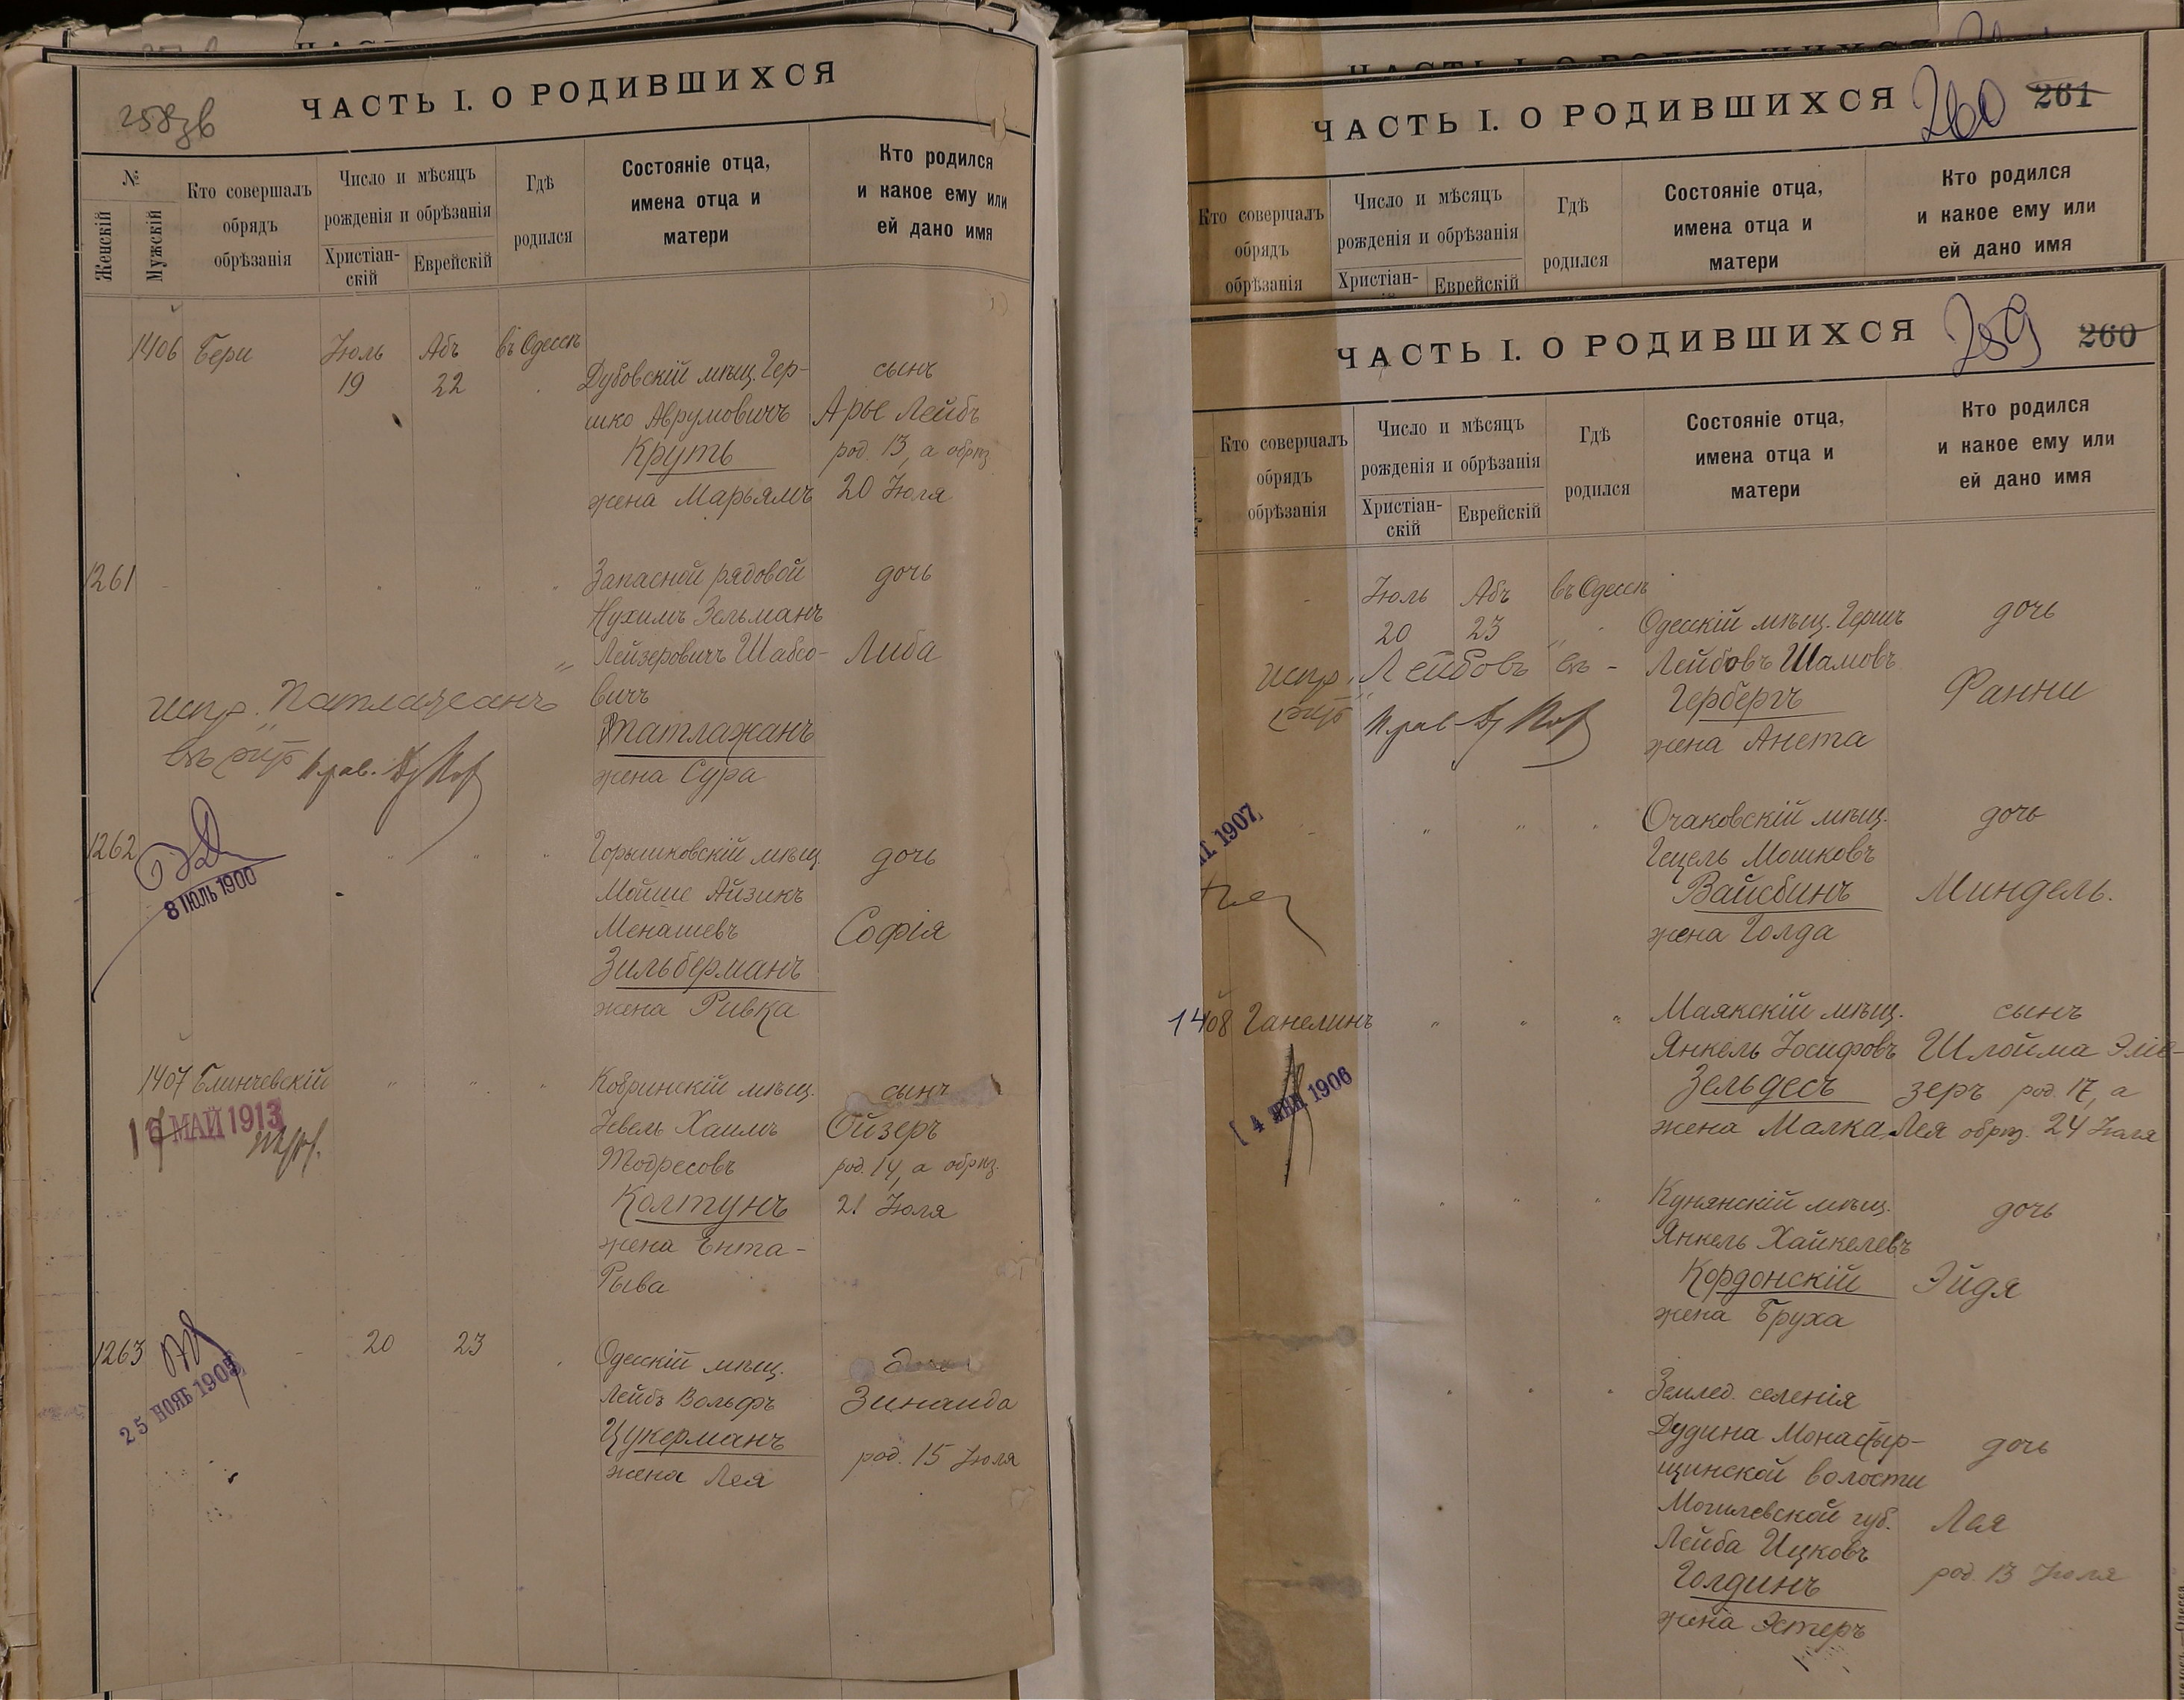 258 зв
ЧАСТЬ I. О РОДИВШИХСЯ
№
Женскій
Мужскій
Кто совершалъ
обрядъ
обрѣзанія
Число и мѣсяцъ
рожденія и обрѣзанія
Христіан-
скій
Еврейскій
Гдѣ
родился
Состояніе отца,
имена отца и
матери
Кто родился
и какое ему или
ей дано имя
1406 Бери Іюль Абъ въ Одессѣ
19 22
Дубовскій мѣщ. Гер-
шко Аврумовичъ
Круть
жена Марьямъ
сынъ
Арье Лейбъ
род. 13, а обрѣз.
20 Іюля
1261
Запасной рядовой
Нухимъ Зельманъ
Лейзеровичъ Шабсо-
вичъ
Патлажанъ
жена Сура
дочь
Либа
испр. "Патлажанъ"
1262
8 ІЮЛЬ 1900
Горышковскій мѣщ.
Мойше Айзикъ
Менашевъ
Зильберманъ
жена Ривка
дочь
Софія
1407 Блинчевскій
16 МАЙ 1913
Кобринскій мѣщ.
Зевель Хаимъ
Тодресовъ
Колтунъ
жена Ента-
Рыва
сынъ
Ойзеръ
род. 14, а обрѣз.
21 Іюля
1263 20 23
25 НОЯБ 1905
Одесскій мѣщ.
Лейбъ Вольфъ
Цукерманъ
жена Лея
дочь
Зинаида
род. 15 Іюля
ЧАСТЬ I. О РОДИВШИХСЯ 260 261
Кто совершалъ
обрядъ
обрѣзанія
Число и мѣсяцъ
рожденія и обрѣзанія
Христіан-
Еврейскій
Гдѣ
родился
Состояніе отца,
имена отца и
матери
Кто родился
и какое ему или
ей дано имя
ЧАСТЬ I. О РОДИВШИХСЯ 259 260
Кто совершалъ
обрядъ
обрѣзанія
Число и мѣсяцъ
рожденія и обрѣзанія
Христіан-
скій
Еврейскій
Гдѣ
родился
Состояніе отца,
имена отца и
матери
Кто родился
и какое ему или
ей дано имя
Іюль Абъ въ Одессѣ
20 23
Одесскій мѣщ. Гершъ
Лейбовъ Шамовъ
Гербергъ
жена Анета
дочь
Фанни
испр. "Лейбовъ"
1907
Очаковскій мѣщ.
Гецель Мошковъ
Вайсбинъ
жена Голда
дочь
Миндель.
1408 Ганелинъ
4 ЯНВ 1906
Маякскій мѣщ.
Янкель Іосифовъ
Зельдесъ
жена Малка Лея
сынъ
Шлойма Эліе-
зеръ род. 17, а
обрѣз. 24 Іюля
Кунянскій мѣщ.
Янкель Хайкелевъ
Кордонскій
жена Бруха
дочь
Эйдя
Землед. селенія
Дудина Монастыр-
щинской волости
Могилевской губ.
Лейба Ицковъ
Голдинъ
жена Эстеръ
дочь
Лея
род. 13 Іюля